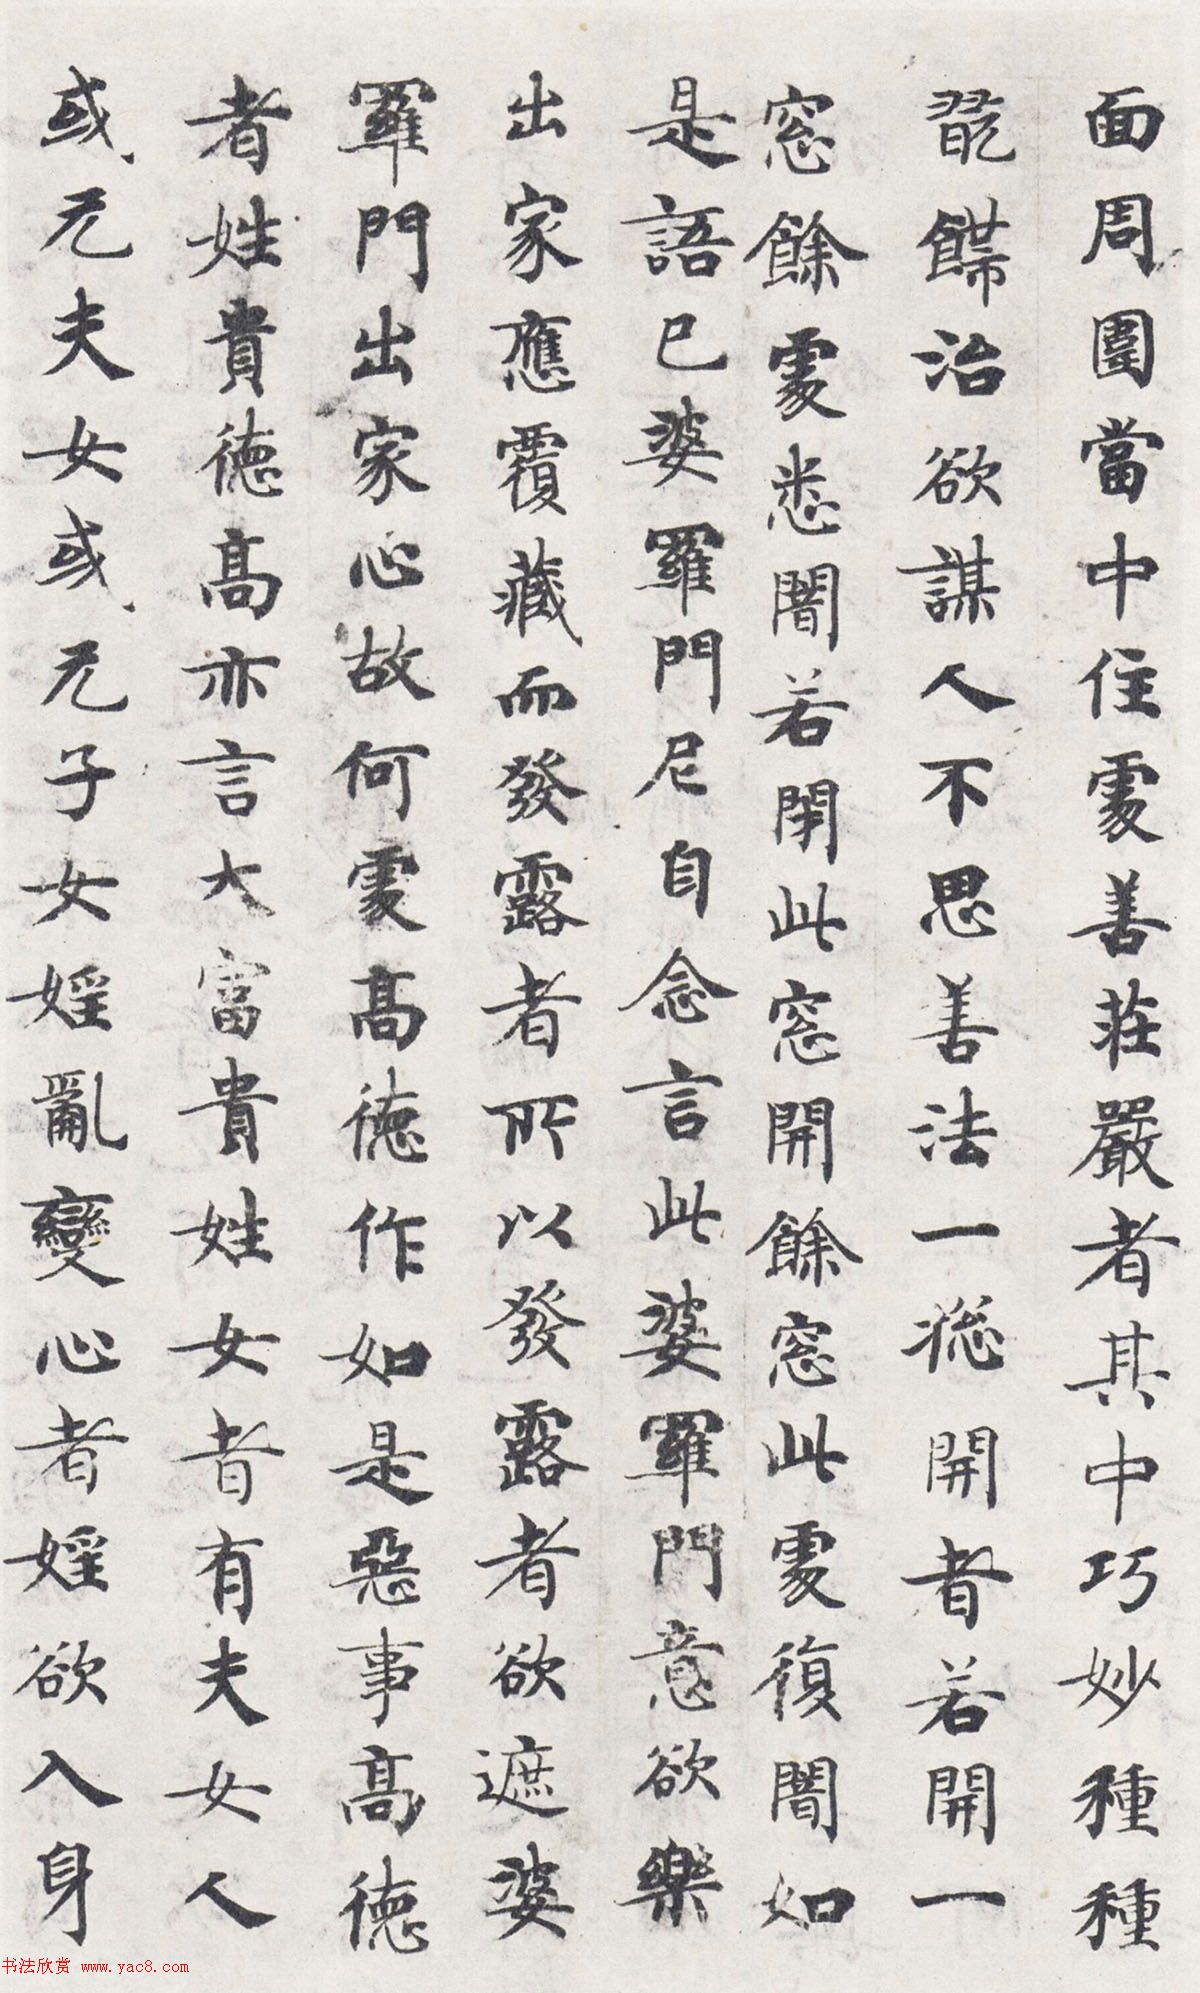 面周圍當中住處善莊嚴者其中巧妙種種
治欲謀人不思善法一窓開者若開一
窓餘處悉闇若閉此窓開餘窓此處復闇如
是語已婆羅門尼自念言此婆羅門意欲樂
出家應覆藏而發露者所以發露者欲遮婆
羅門出家心故何處高德作如是惡事高德
者姓貴德高亦言大富貴姓女者有夫女人
或无夫女或无子女婬亂變心者婬欲入身
书法欣赏 www.yac8.com